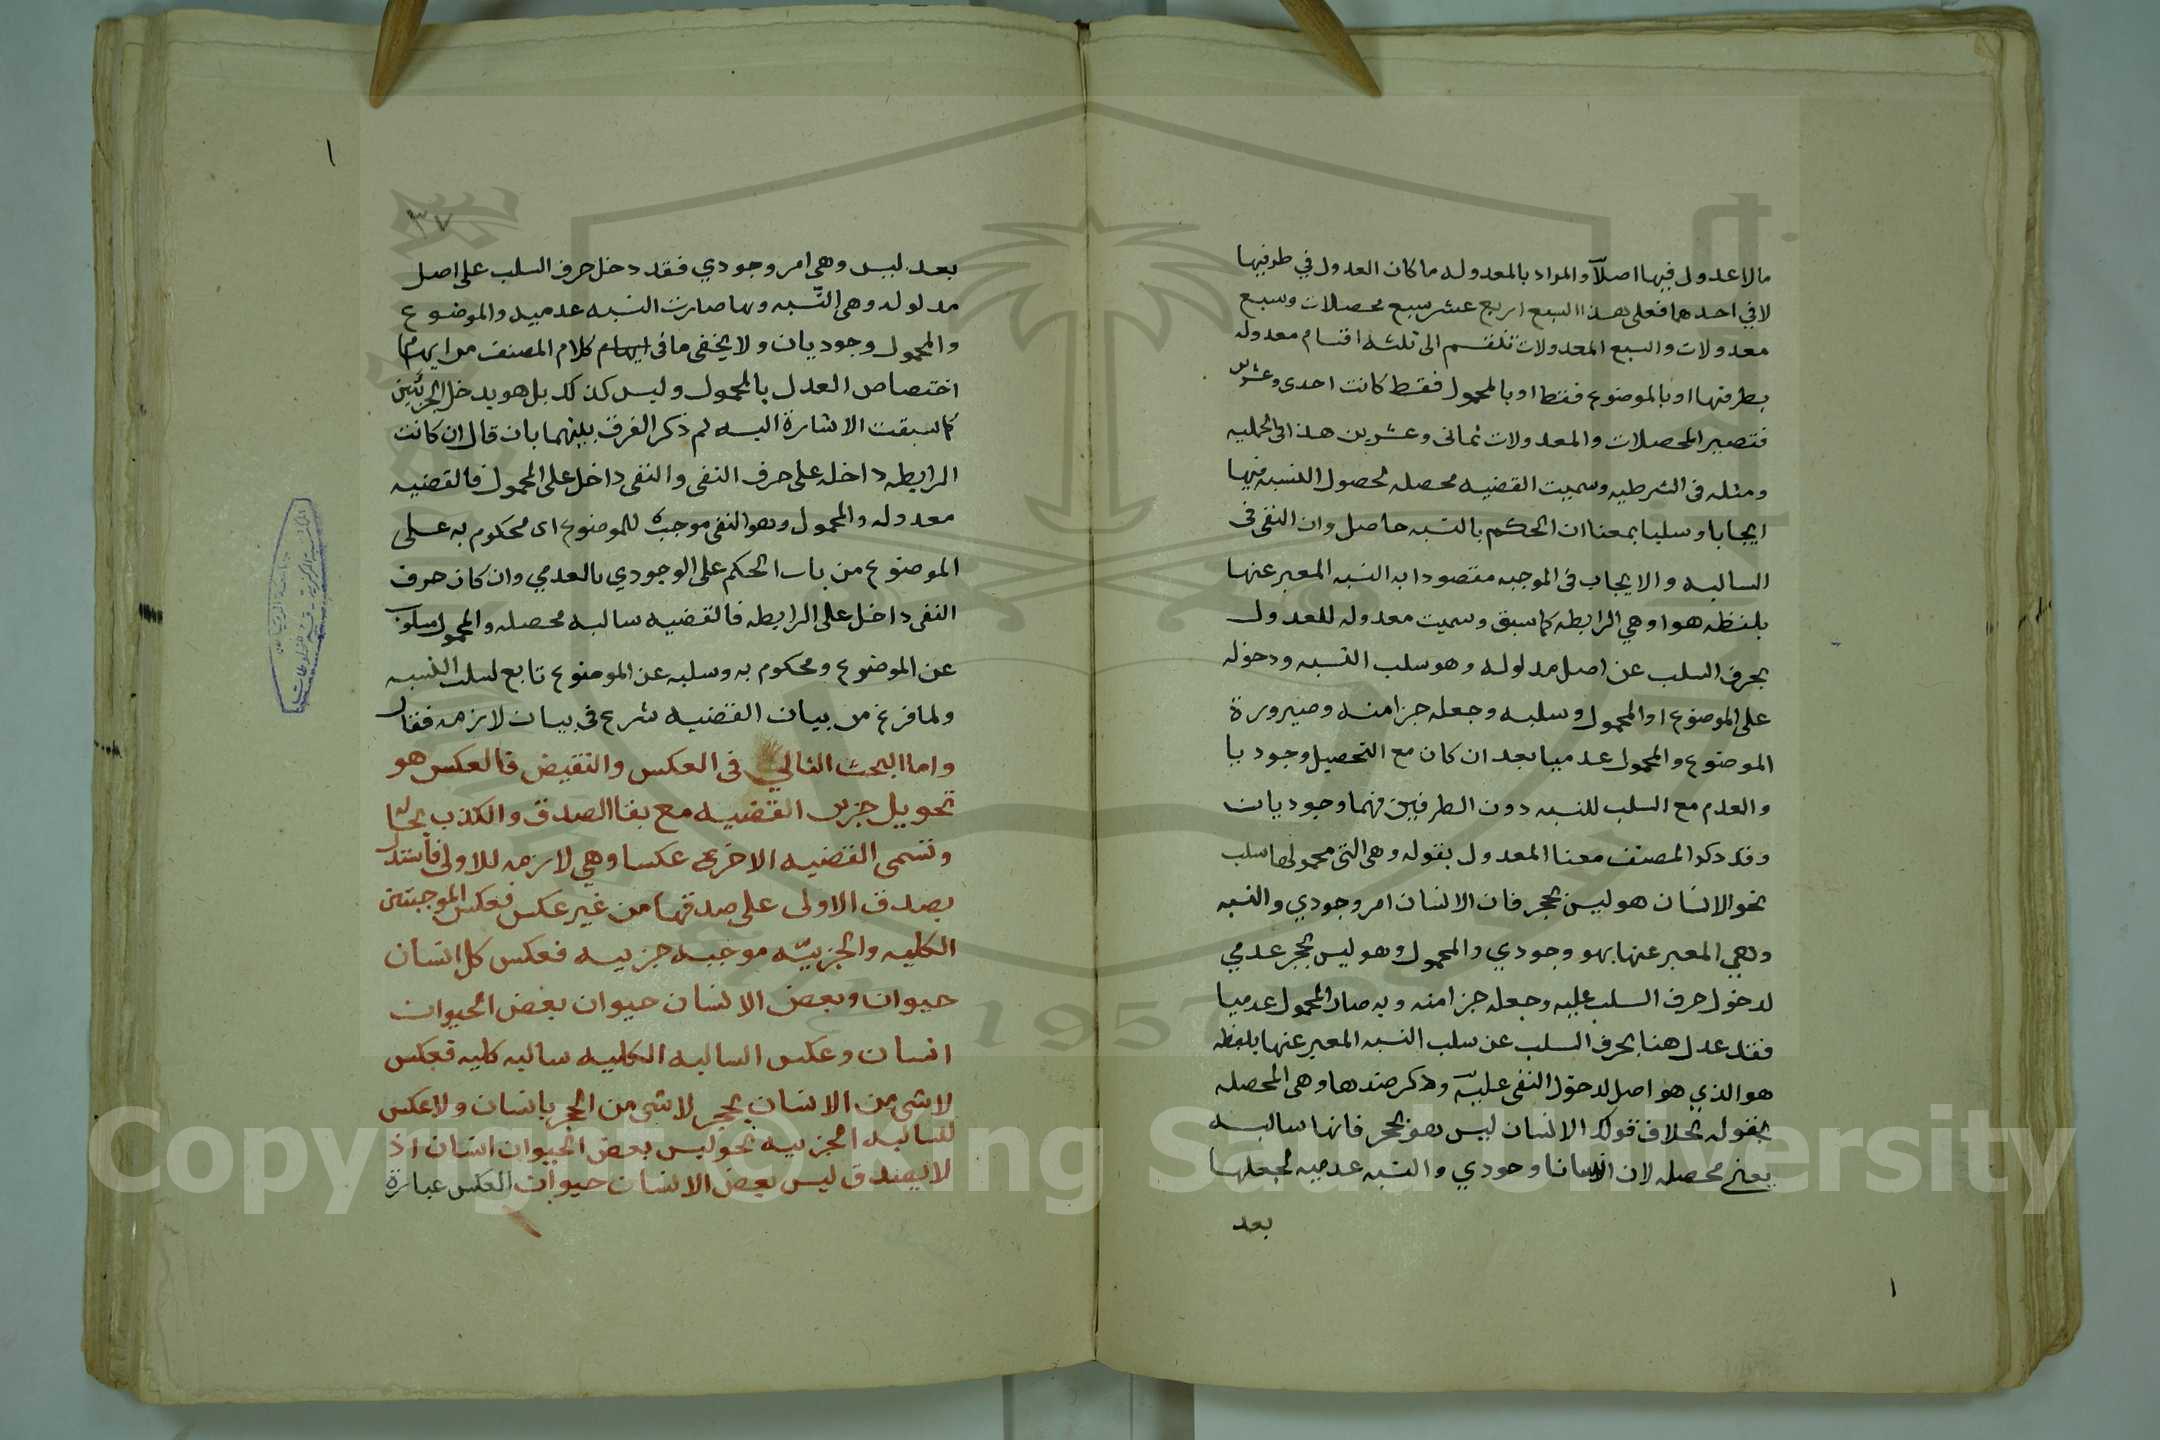 مالا عدول فيها اصلاً والمراد بالمعدوله ما كان العدول في طرفيها
لا في احدهما فعلى هذا السبع اربع عشر سبع محصلات وسبع
معدولات والسبع المعدولات تنقسم الى ثلثه اقسام معدوله
بطرفيها او بالموضوع فقط او بالمحمول فقط كانت احدى وعشرين
فتصير المحصلات والمعدولات ثمانى وعشرين هذا فى الحمليه
ومثله فى الشرطيه وسميت القضيه محصله لحصول النسبه فيها
ايجابا وسلبا بمعنا ان الحكم بالنسبه حاصل وان النفى فى
السالبه والايجاب فى الموجبه مقصودا به النسبه المعبر عنها
بلفظه هو او هي الرابطه كما سبق وسميت معدوله للعدول
بحرف السلب عن اصل مدلوله وهو سلب النسبه ودخوله
على الموضوع او المحمول وسلبه وجعله جزا منه وصيرورة
الموضوع والمحمول عدميا بعد ان كان مع التحصيل وجوديا
والعدم مع السلب للنسبه دون الطرفين فهما وجوديان
وقد ذكر المصنف معنا المعدول بقوله وهى التى محمولها سلب
نحو الانسان هو ليس بحجر فان الانسان امر وجودي والنسبه
وهي المعبر عنها بهو وجودي والمحمول وهو ليس بحجر عدمي
لدخول حرف السلب عليه وجعله جزا منه وبه صار المحمول عدميا
فقد عدل هنا بحرف السلب عن سلب النسبه المعبر عنها بلفظه
هو الذي هو اصل لدخول النفى عليه وذكر ضدها وهى المحصله
بقوله بخلاف قولك الانسان ليس هو بحجر فانها سالبه
يعني محصله لان الانسان وجودي والنسبه عدميه لجعلها
بعد
١
١
٣٧
بعد ليس وهى امر وجودي فقد دخل حرف السلب على اصل
مدلوله وهى النّسبه وبها صارت النسبه عدميه والموضوع
والمحمول وجوديان ولا يخفى ما فى كلام المصنف من ايهام
اختصاص العدل بالمحمول وليس كذلك بل هو يدخل الجزئين
كما سبقت الاشارة اليه ثم ذكر الفرق بينهما بان قال ان كانت
الرابطه داخله على حرف النفى والنفى داخل على المحمول فالقضيه
معدوله والمحمول وهو النفى موجبه للموضوع اى محكوم به على
الموضوع من باب الحكم على الوجودي بالعدمي وان كان حرف
النفى داخل على الرابطه فالقضيه سالبه محصله والمحمول مسلوب
عن الموضوع ومحكوم به وسلبه عن الموضوع تابع لسلب النسبه
ولما فرغ من بيان القضيه شرع فى بيان لازمه فقال
واما البحث الثالث فى العكس والنقيض فالعكس هو
تحويل جزي القضيه مع بقا الصدق والكذب بحاله
وتسمى القضيه الاخرى عكسا وهي لازمه للاولى
بصدق الاولى على صدقها من غير عكس فعكس الموجبتين
الكليه والجزييّه موجبه جزييه فعكس كل انسان
حيوان وبعض الانسان حيوان بعض الحيوان
انسان وعكس السالبه الكليه سالبه كليه فعكس
لا شى من الانسان بحجر لا شى من الحجر بانسان ولا عكس
للسالبه الجزييه نحو ليس بعض الحيوان انسان اذ
لا يصدق ليس بعض الانسان حيوان العكس عبارة
Copyright © King Saud University
1957